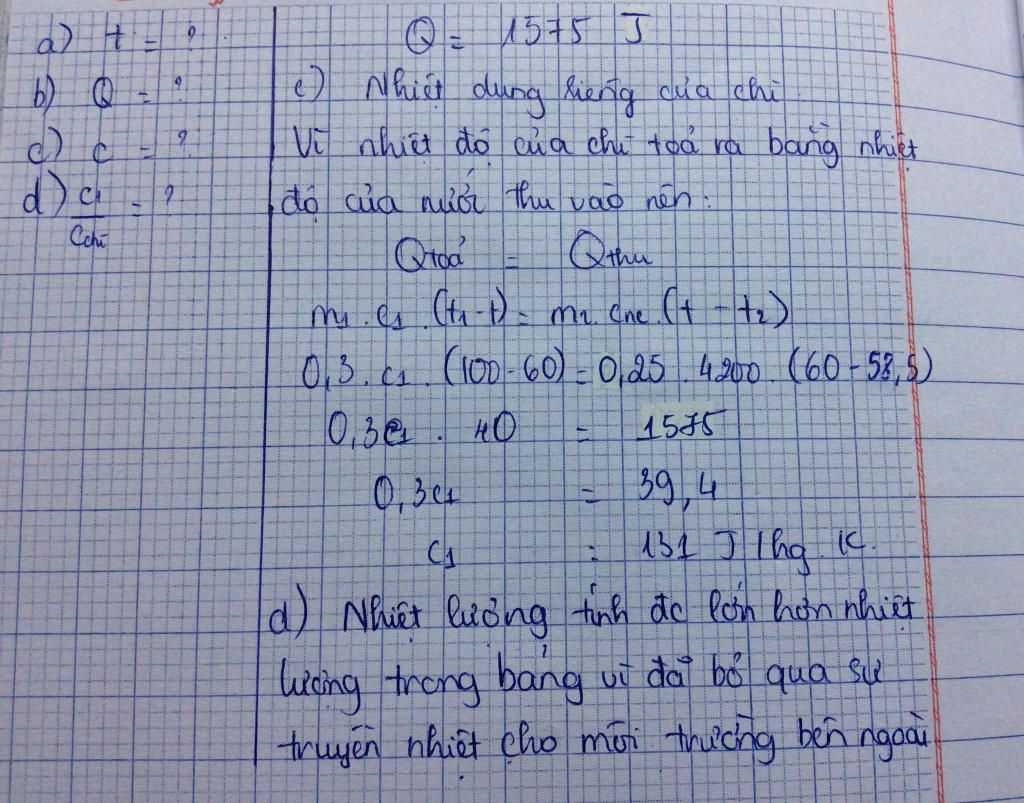 a) t = ?
b) Q = ?
c) c = ?
d) c1/cchì = ?
Q = 1575 J
c) Nhiệt dung riêng của chì
Vì nhiệt độ của chì toả ra bằng nhiệt
độ của nước thu vào nên:
Qtoả = Qthu
m1 . c1 . (t1 - t) = m2 . cnc . (t - t2)
0,3 . c1 . (100 - 60) = 0,25 . 4200 . (60 - 58,5)
0,3c1 . 40 = 1575
0,3c1 = 39,4
c1 = 131 J / kg . K.
d) Nhiệt lượng tính đc lớn hơn nhiệt
lượng trong bảng vì đã bỏ qua sự
truyền nhiệt cho môi trường bên ngoài